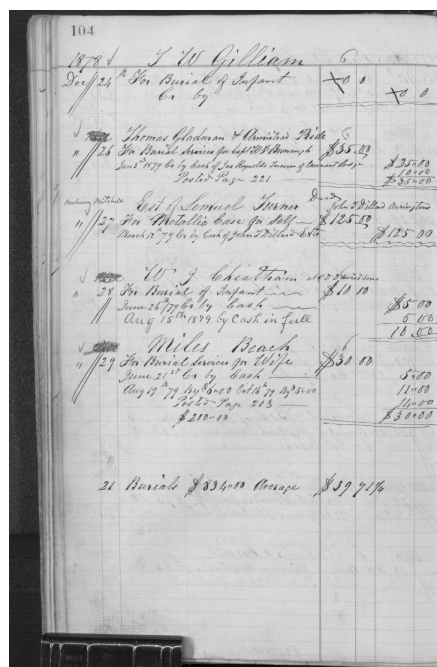 104
1878 T W Gilliam 6
Dec 24 th For Burial of Infant X0 0
Cr by X0 0
Thomas Gladman & Armistead Pride
" 26 For Burial Services for Capt $35.00
Jany 3d 1879 Cr by Cash of Jas Reynolds Lodge $25"00
10"00
Posted Page 221 $35"00
Est of Samuel Turner Dead John T Dillard
" 27 For Metallic Case for Self $125.00
March 12th 79 Cr by Cash of John T Dillard $125 00
W J Cheatham
" 28 For Burial of Infant $10.00
June 26th 79 Cr by Cash $5 00
Aug 15th 1879 by Cash in full 5 00
10.00
Miles Beach
" 29 For Burial Services for Wife $30.00
June 21st Cr by Cash 5"00
Aug 19th 79 6"00 Oct 14th 79 5"00 11"00
Posted Page 203 14"00
$200"00 $30"00
21 Burials $834"00 Average $39 71 1/4